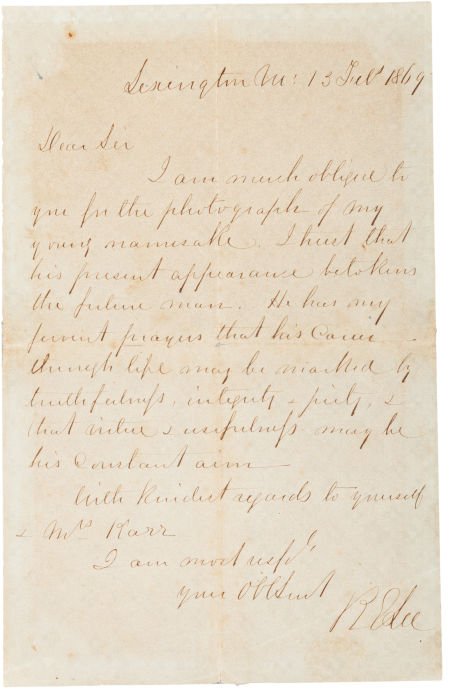 Lexington Va: 13 Feby 1869
Dear Sir
I am much obliged to
you for the photograph of my
young namesake. I trust that
his present appearance betokens
the future man. He has my
fervent prayers that his Career
through life may be marked by
truthfulness, integrity & piety, &
that virtue & usefulness may be
his Constant aim
With kindest regards to yourself
& Mrs Karr
I am most respy
your Obt Servt
R E Lee